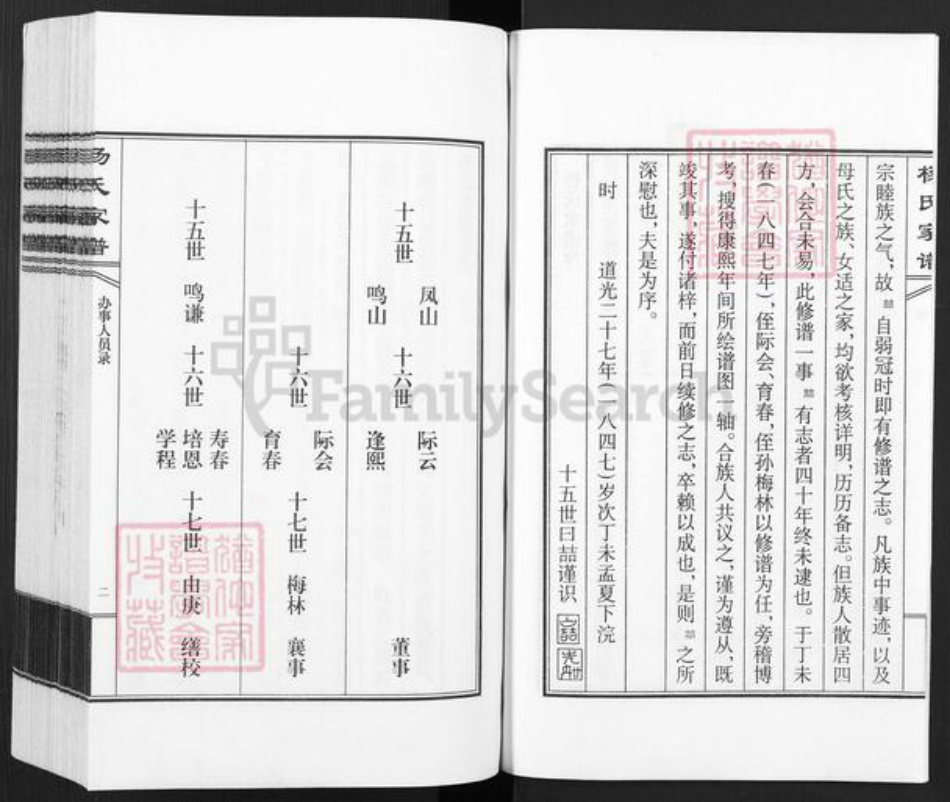 杨氏家谱
宗睦族之气，故喆自弱冠时即有修谱之志。凡族中事迹，以及
母氏之族、女适之家，均欲考核详明，历历备志。但族人散居四
方，会合未易，此修谱一事喆有志者四十年终未逮也。于丁未
春(一八四七年)，侄际会、育春，侄孙梅林以修谱为任，旁稽博
考，搜得康熙年间所绘谱图一轴。合族人共议之，谨为遵从，既
竣其事，遂付诸梓，而前日续修之志，卒赖以成也，是则喆之所
深慰也，夫是为序。
时 道光二十七年(一八四七)岁次丁未孟夏下浣
十五世曰喆谨识
十五世 凤山 鸣山 十六世 际云 逢熙 董事
十六世 际会 育春 十七世 梅林 襄事
十五世 鸣谦 十六世 寿春 培恩 学程 十七世 由庚 缮校
杨氏家谱
办事人员录
二
FamilySearch